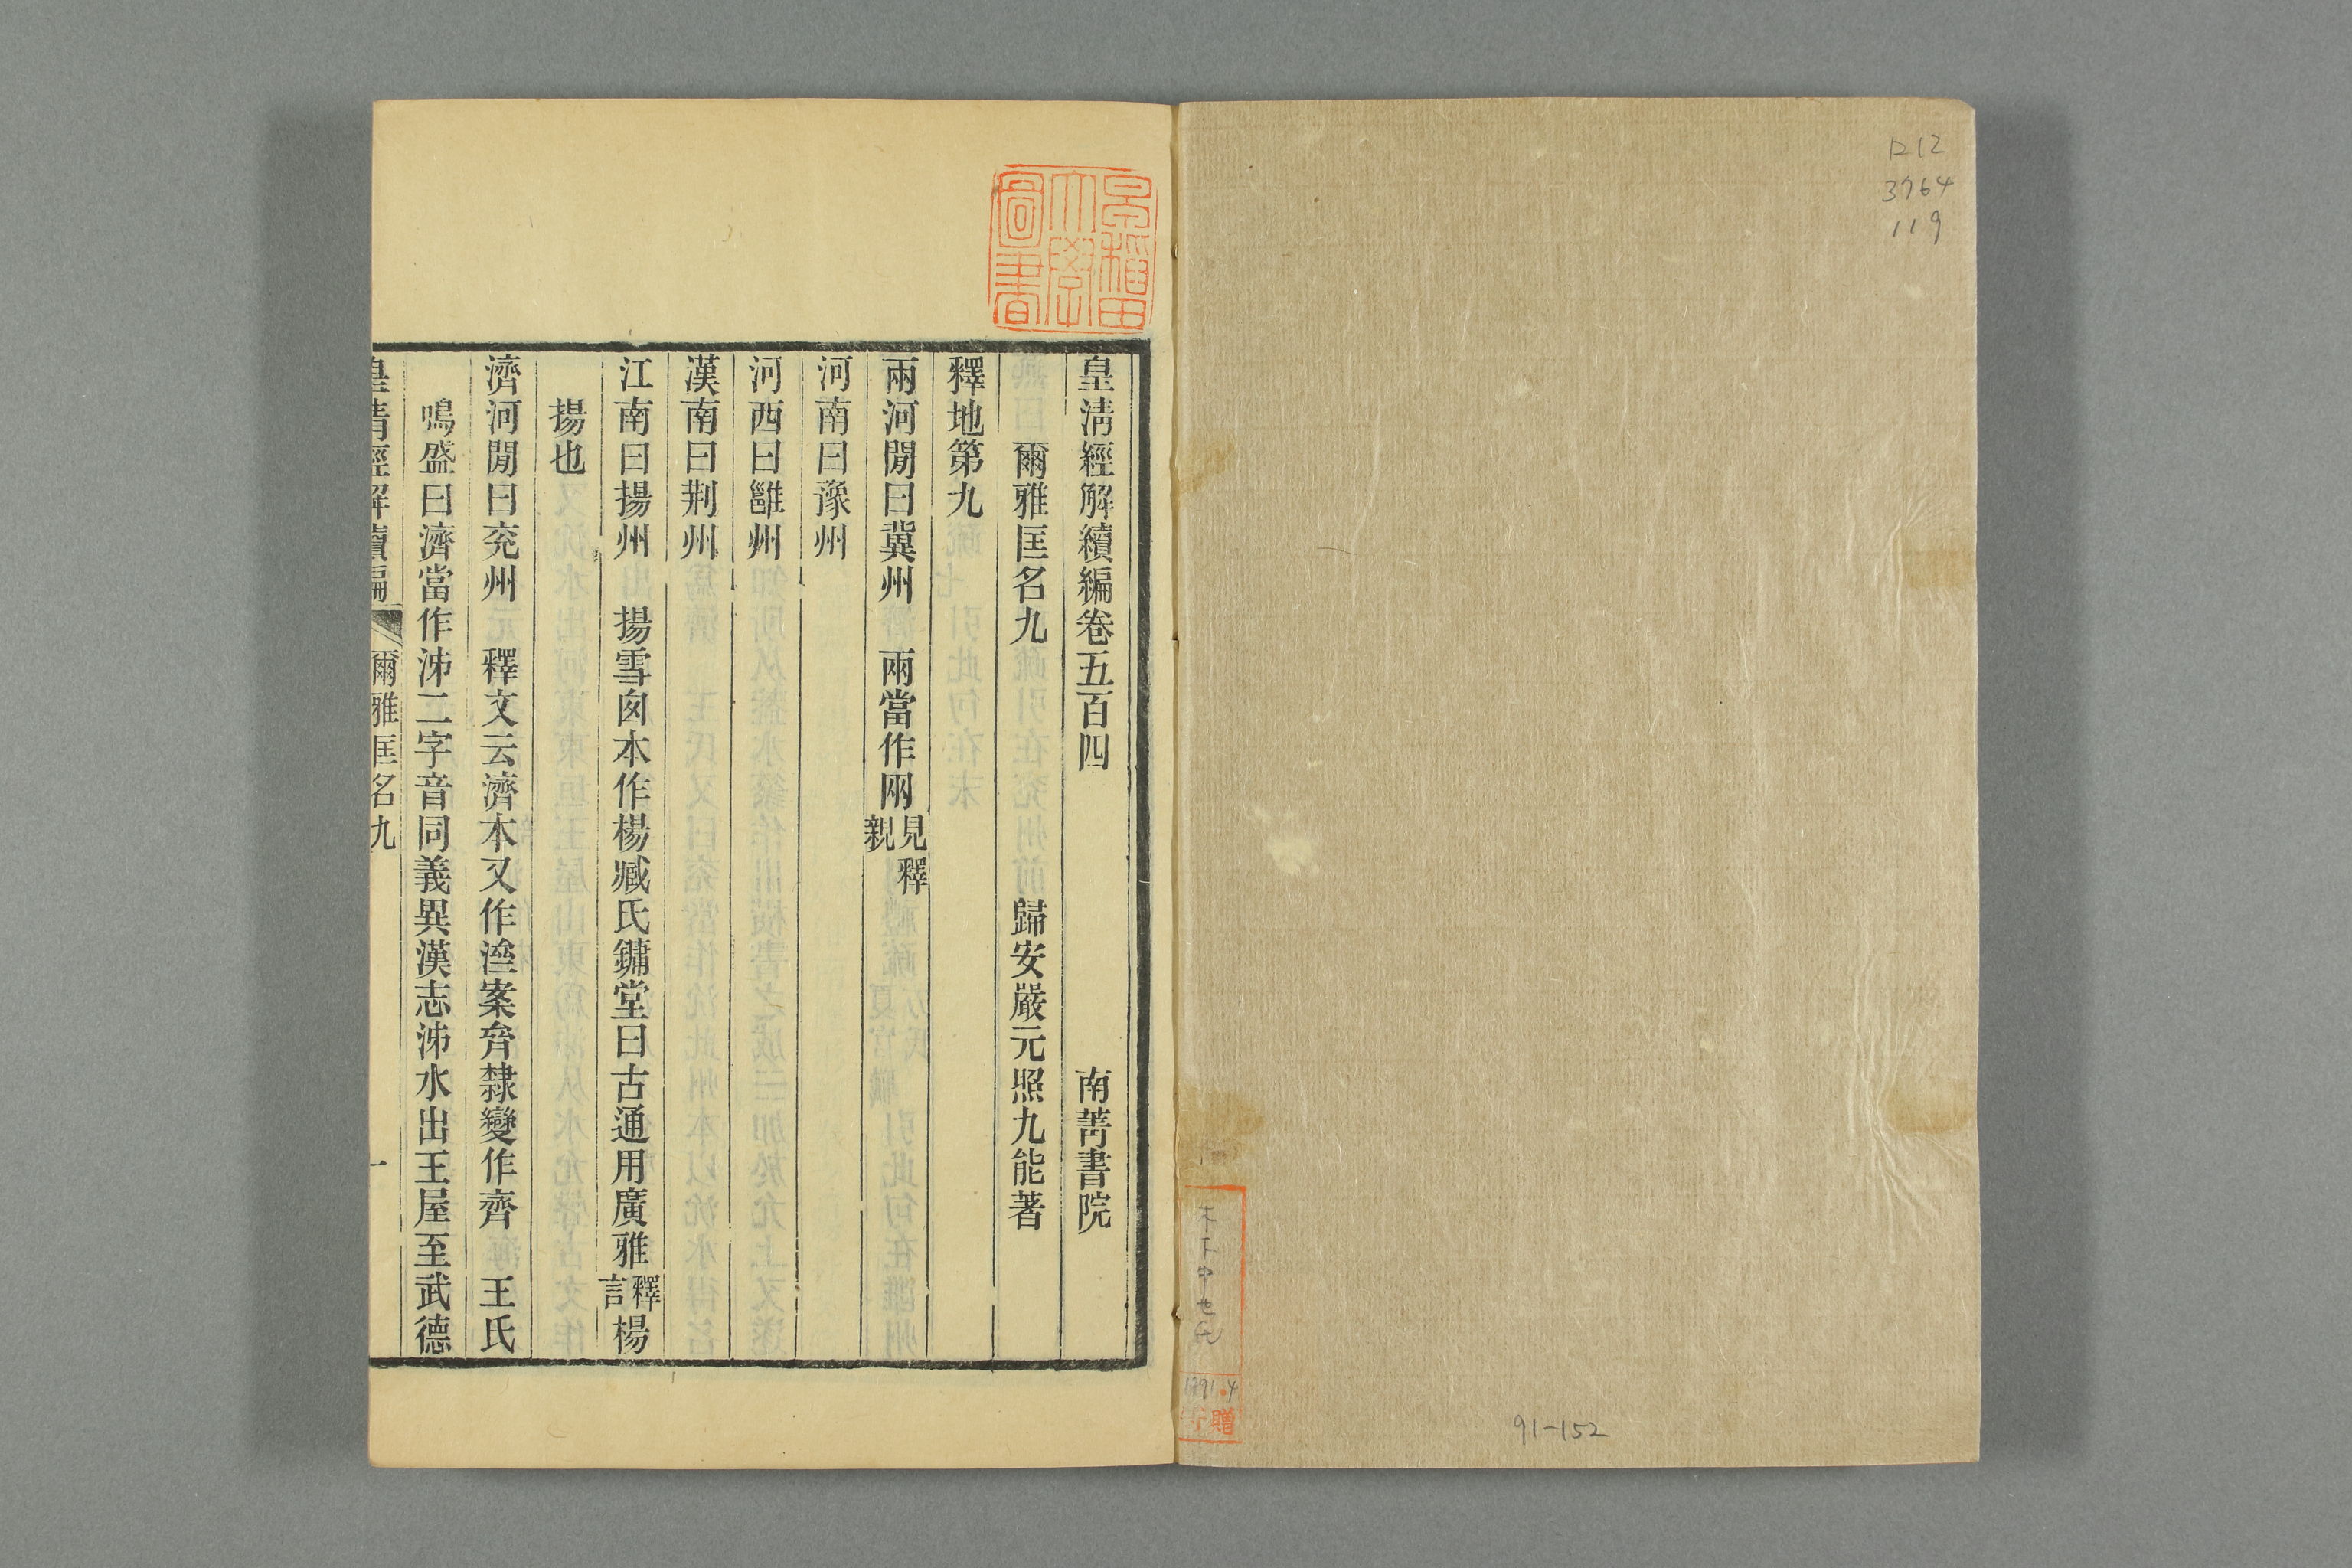 ロ12
3764
119
91-152
1991.4
贈
早稲田
大學
圖書
皇清經解續編卷五百四 南菁書院
爾雅匡名九 歸安嚴元照九能著
釋地第九
兩河閒曰冀州 兩當作㒳見釋親
河南曰豫州
河西曰雝州
漢南曰荆州
江南曰揚州 揚雪囱本作楊臧氏鏞堂曰古通用廣雅釋言楊
揚也
濟河閒曰兖州 釋文云濟本又作𣸣案㪰隸變作齊 王氏
鳴盛曰濟當作泲二字音同義異漢志泲水出王屋至武德
皇清經解續編 爾雅匡名九 一